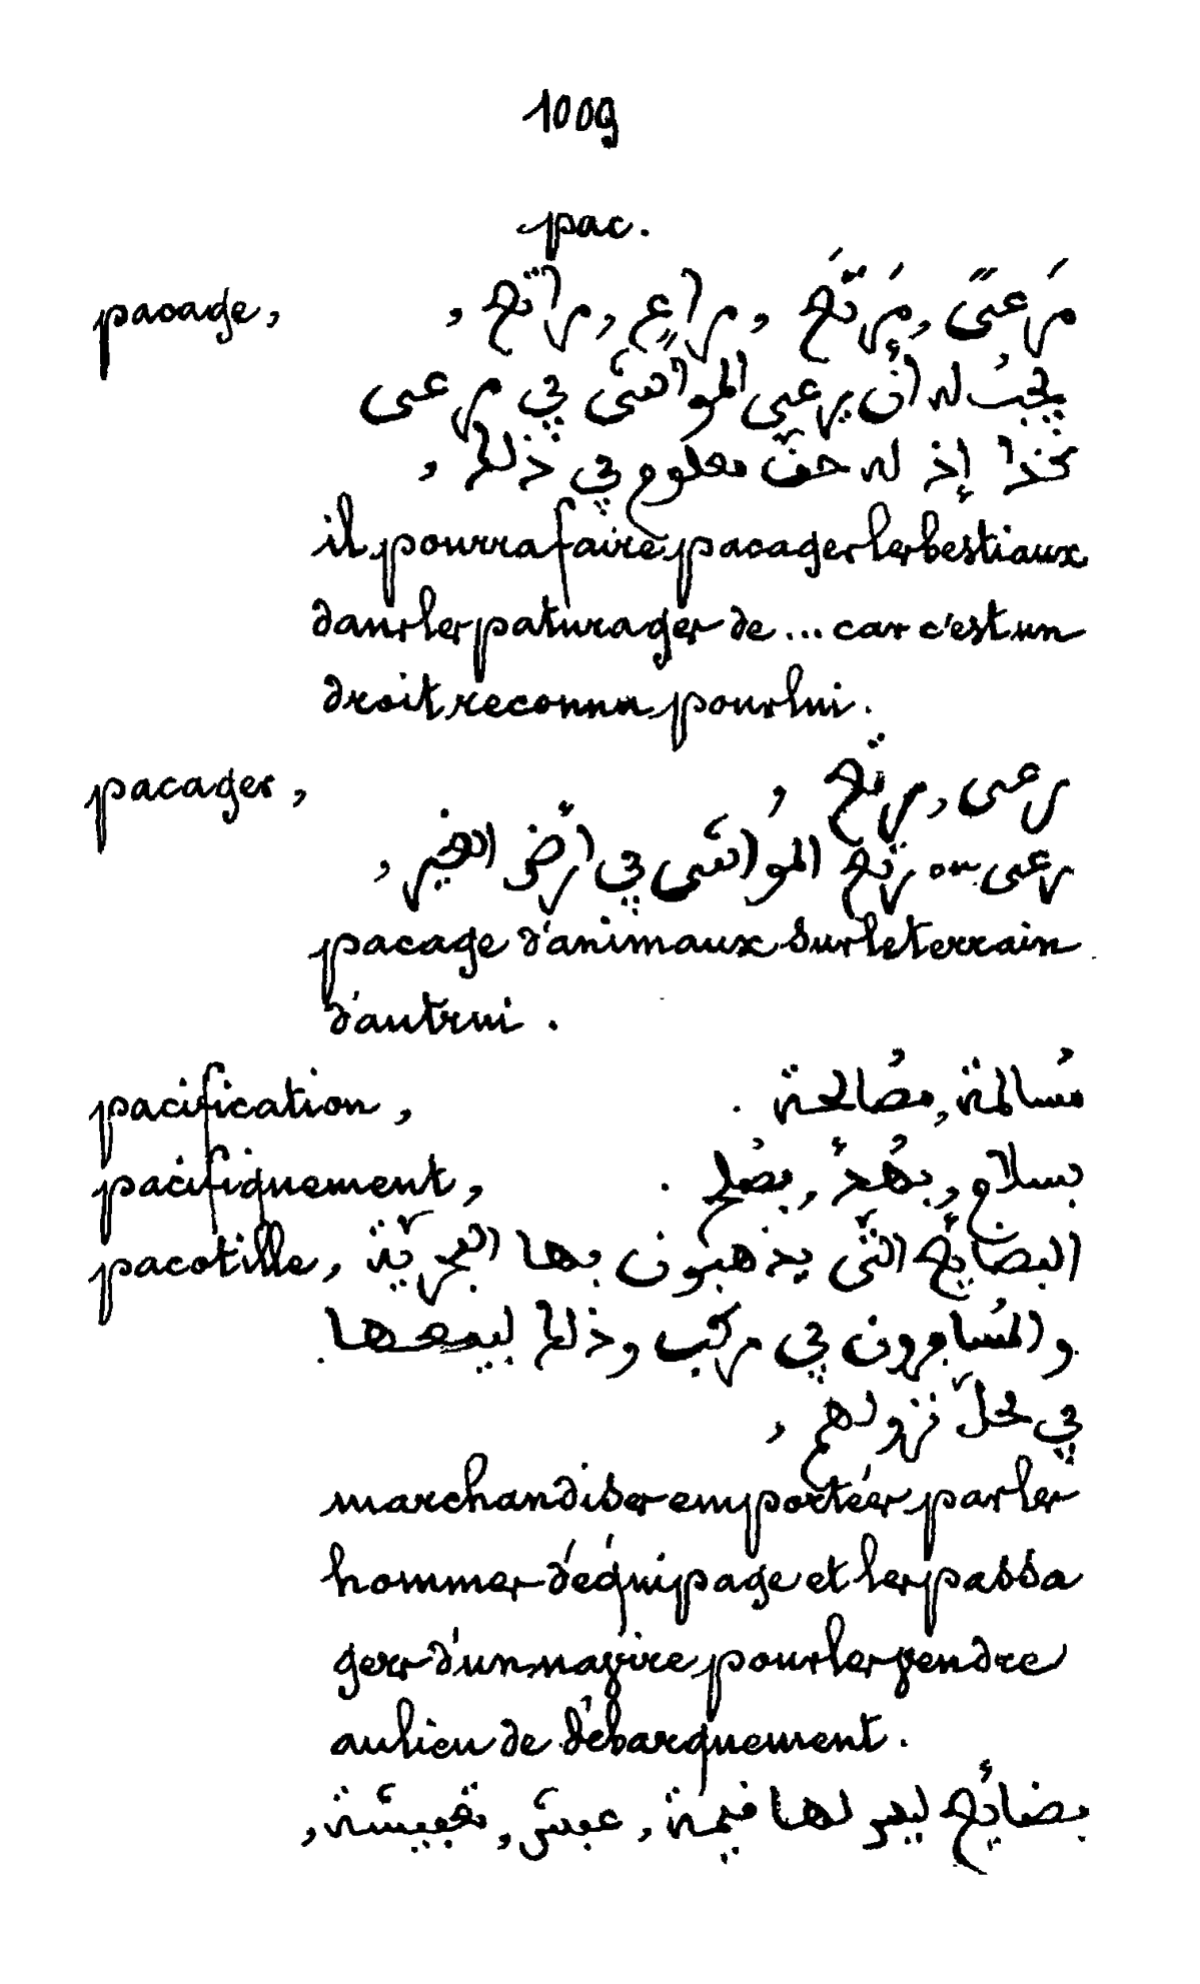 1009
pac.
pacage, مَرعىً, مَرتَع, مراعٍ, مراتع,
يجبُ له أن يرعى المواشَى في مرعى
كذا إذ له حقّ معلوم في ذلك,
il pourra faire pacager les bestiaux
dans les paturages de ... car c'est un
droit reconnu pour lui.
pacager, رعى, رتع,
رعى رتع المُواشَى في أرض الغير,
pacage d'animaux sur le terrain
d'autrui.
pacification, مُسالمة, مُصالحة.
pacifiquement, بسلام, بهُدءٍ, بصُلح.
pacotille, البضائع التّى يذهبون بها البحريّة
والمُسافرون في مركب وذلك لبيعها
في محلّ نزولهم,
marchandises emportées par les
hommes d'équipage et les passa
gers d'un navire pour les vendre
au lieu de débarquement.
بضائع ليس لها قيمة,